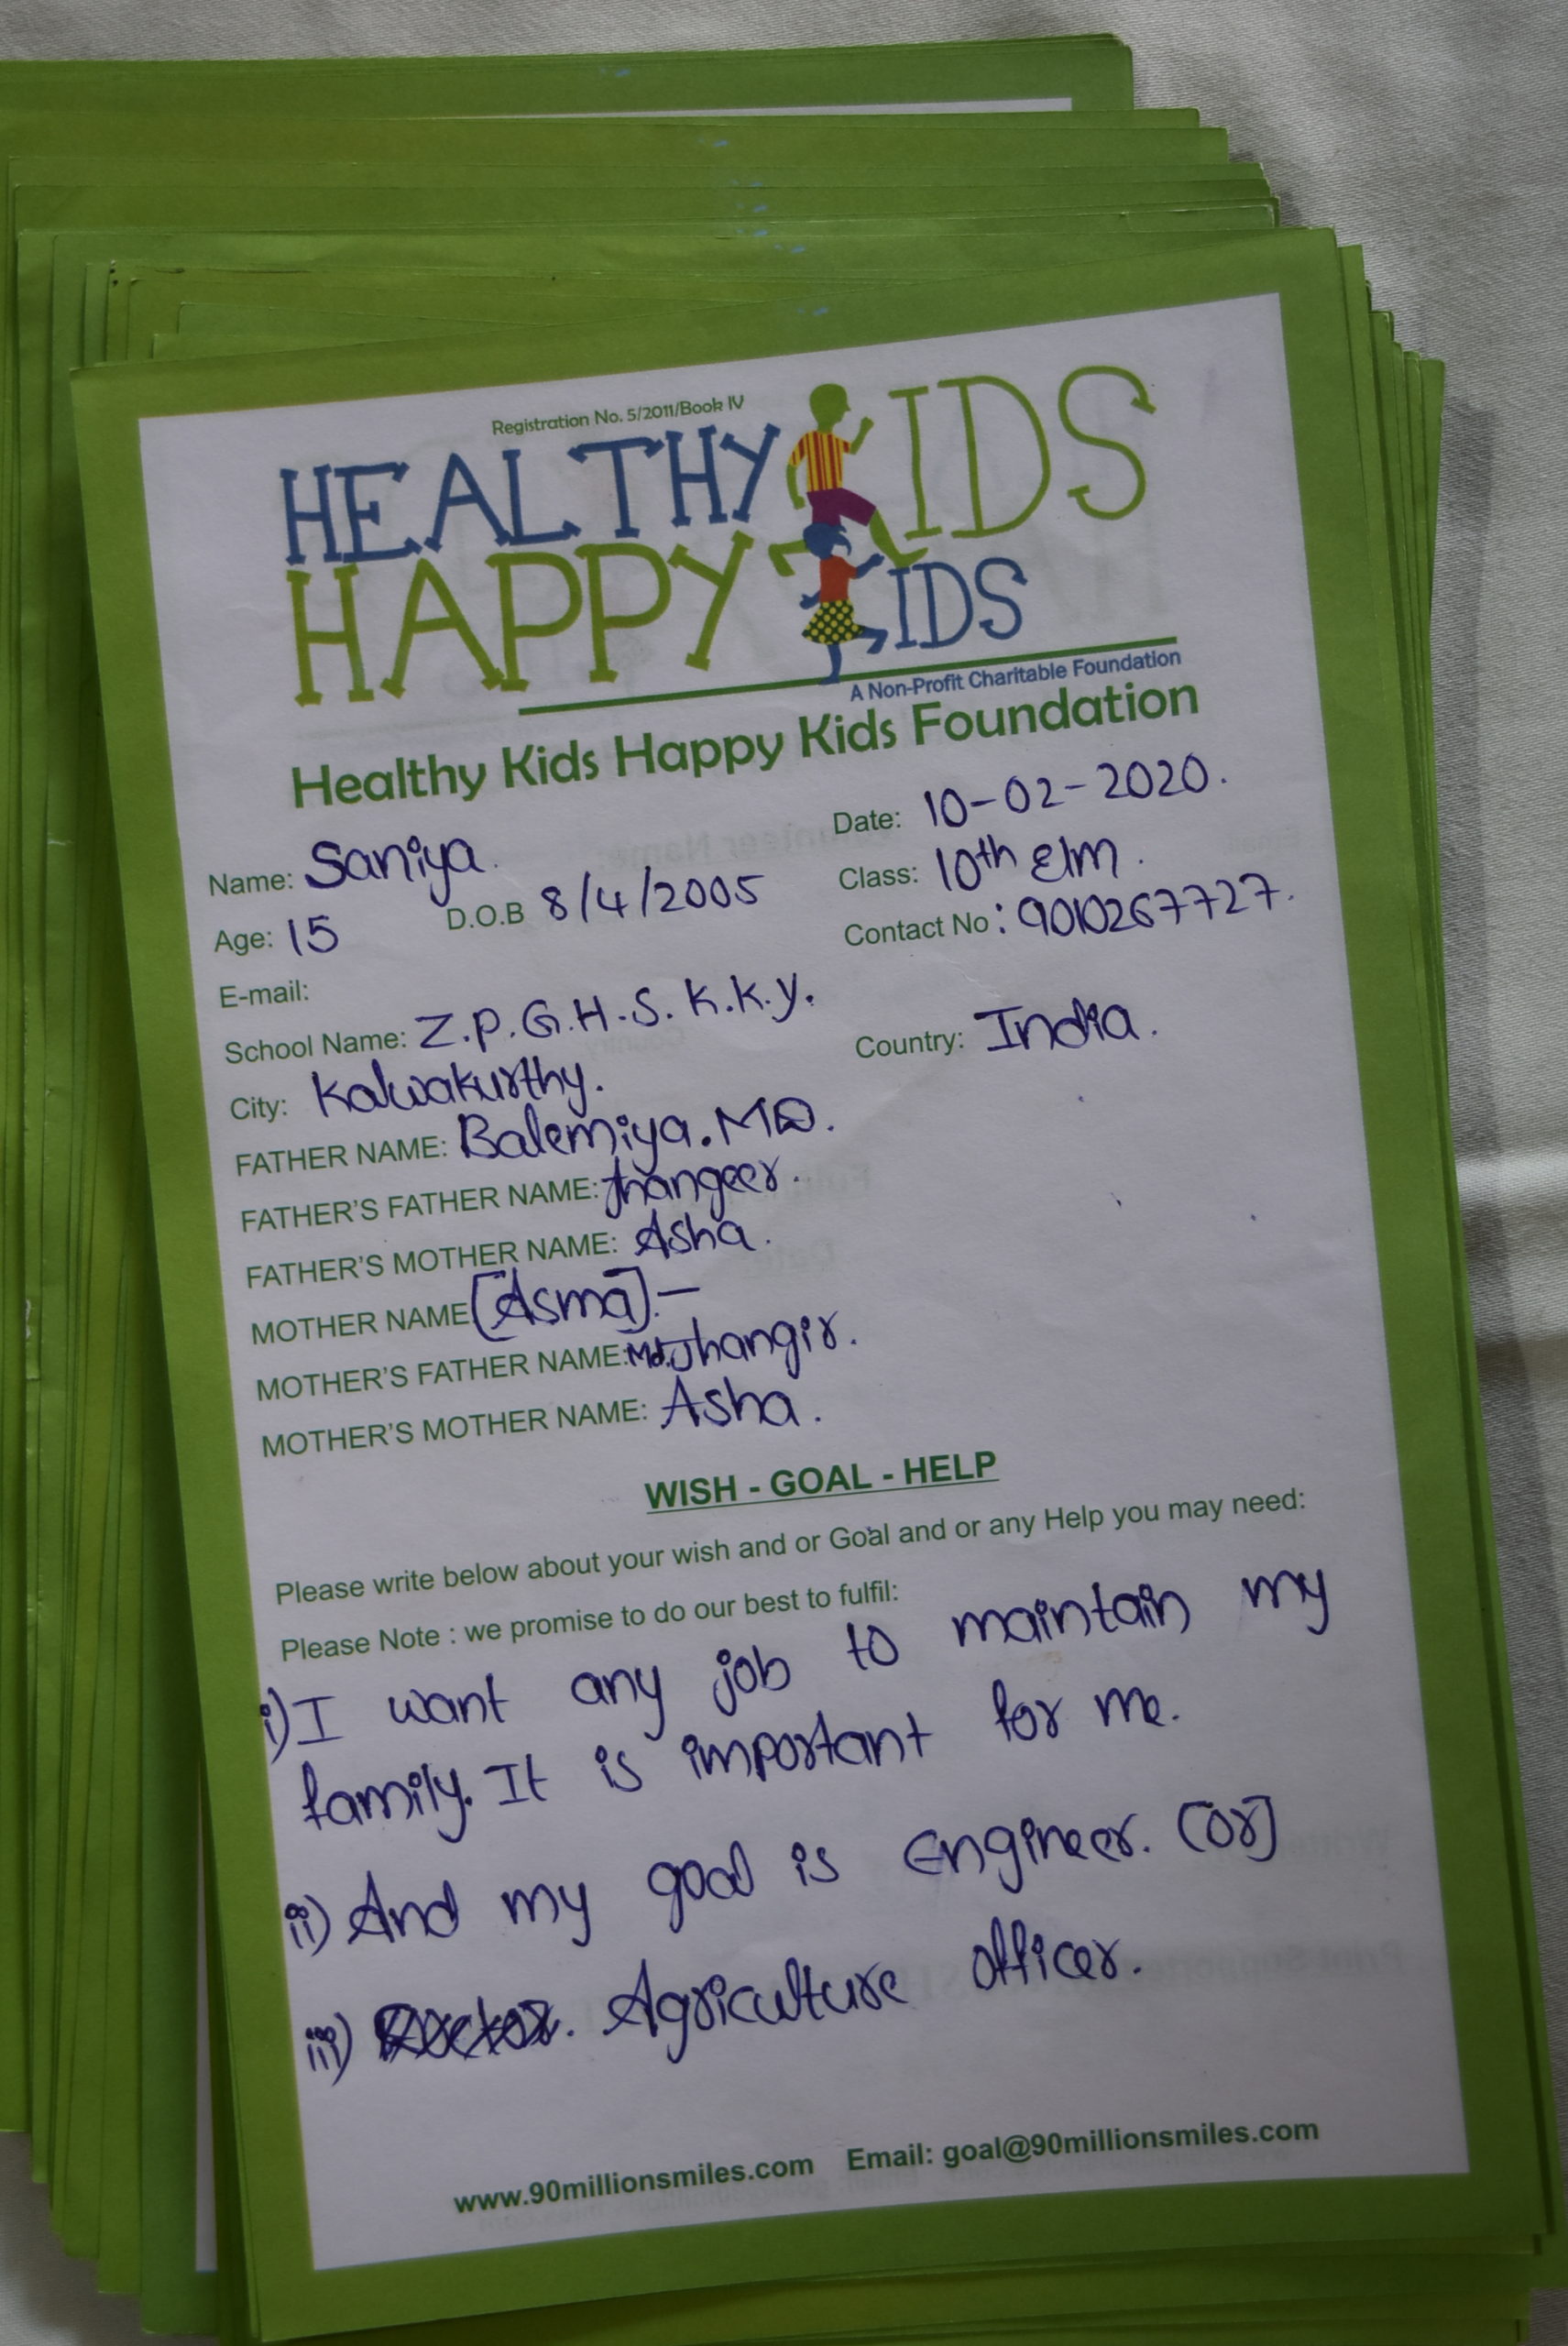 Registration No. 5/2011/Book IV
HEALTHY KIDS
HAPPY KIDS
A Non-Profit Charitable Foundation
Healthy Kids Happy Kids Foundation
Date: 10-02-2020.
Name: Saniya.
Class: 10th E/m.
Age: 15 D.O.B 8/4/2005
Contact No: 9010267727.
E-mail:
School Name: Z.P.G.H.S. K.K.y.
City: Kalwakurthy.
Country: India.
FATHER NAME: Balemiya. MD.
FATHER'S FATHER NAME: Jhangeer.
FATHER'S MOTHER NAME: Asha.
MOTHER NAME [Asma].-
MOTHER'S FATHER NAME: Md. Jhangir.
MOTHER'S MOTHER NAME: Asha.
WISH - GOAL - HELP
Please write below about your wish and or Goal and or any Help you may need:
Please Note : we promise to do our best to fulfil:
i) I want any job to maintain my
family. It is important for me.
ii) And my goal is Engineer. [or]
iii) Agriculture officer.
www.90millionsmiles.com Email: goal@90millionsmiles.com